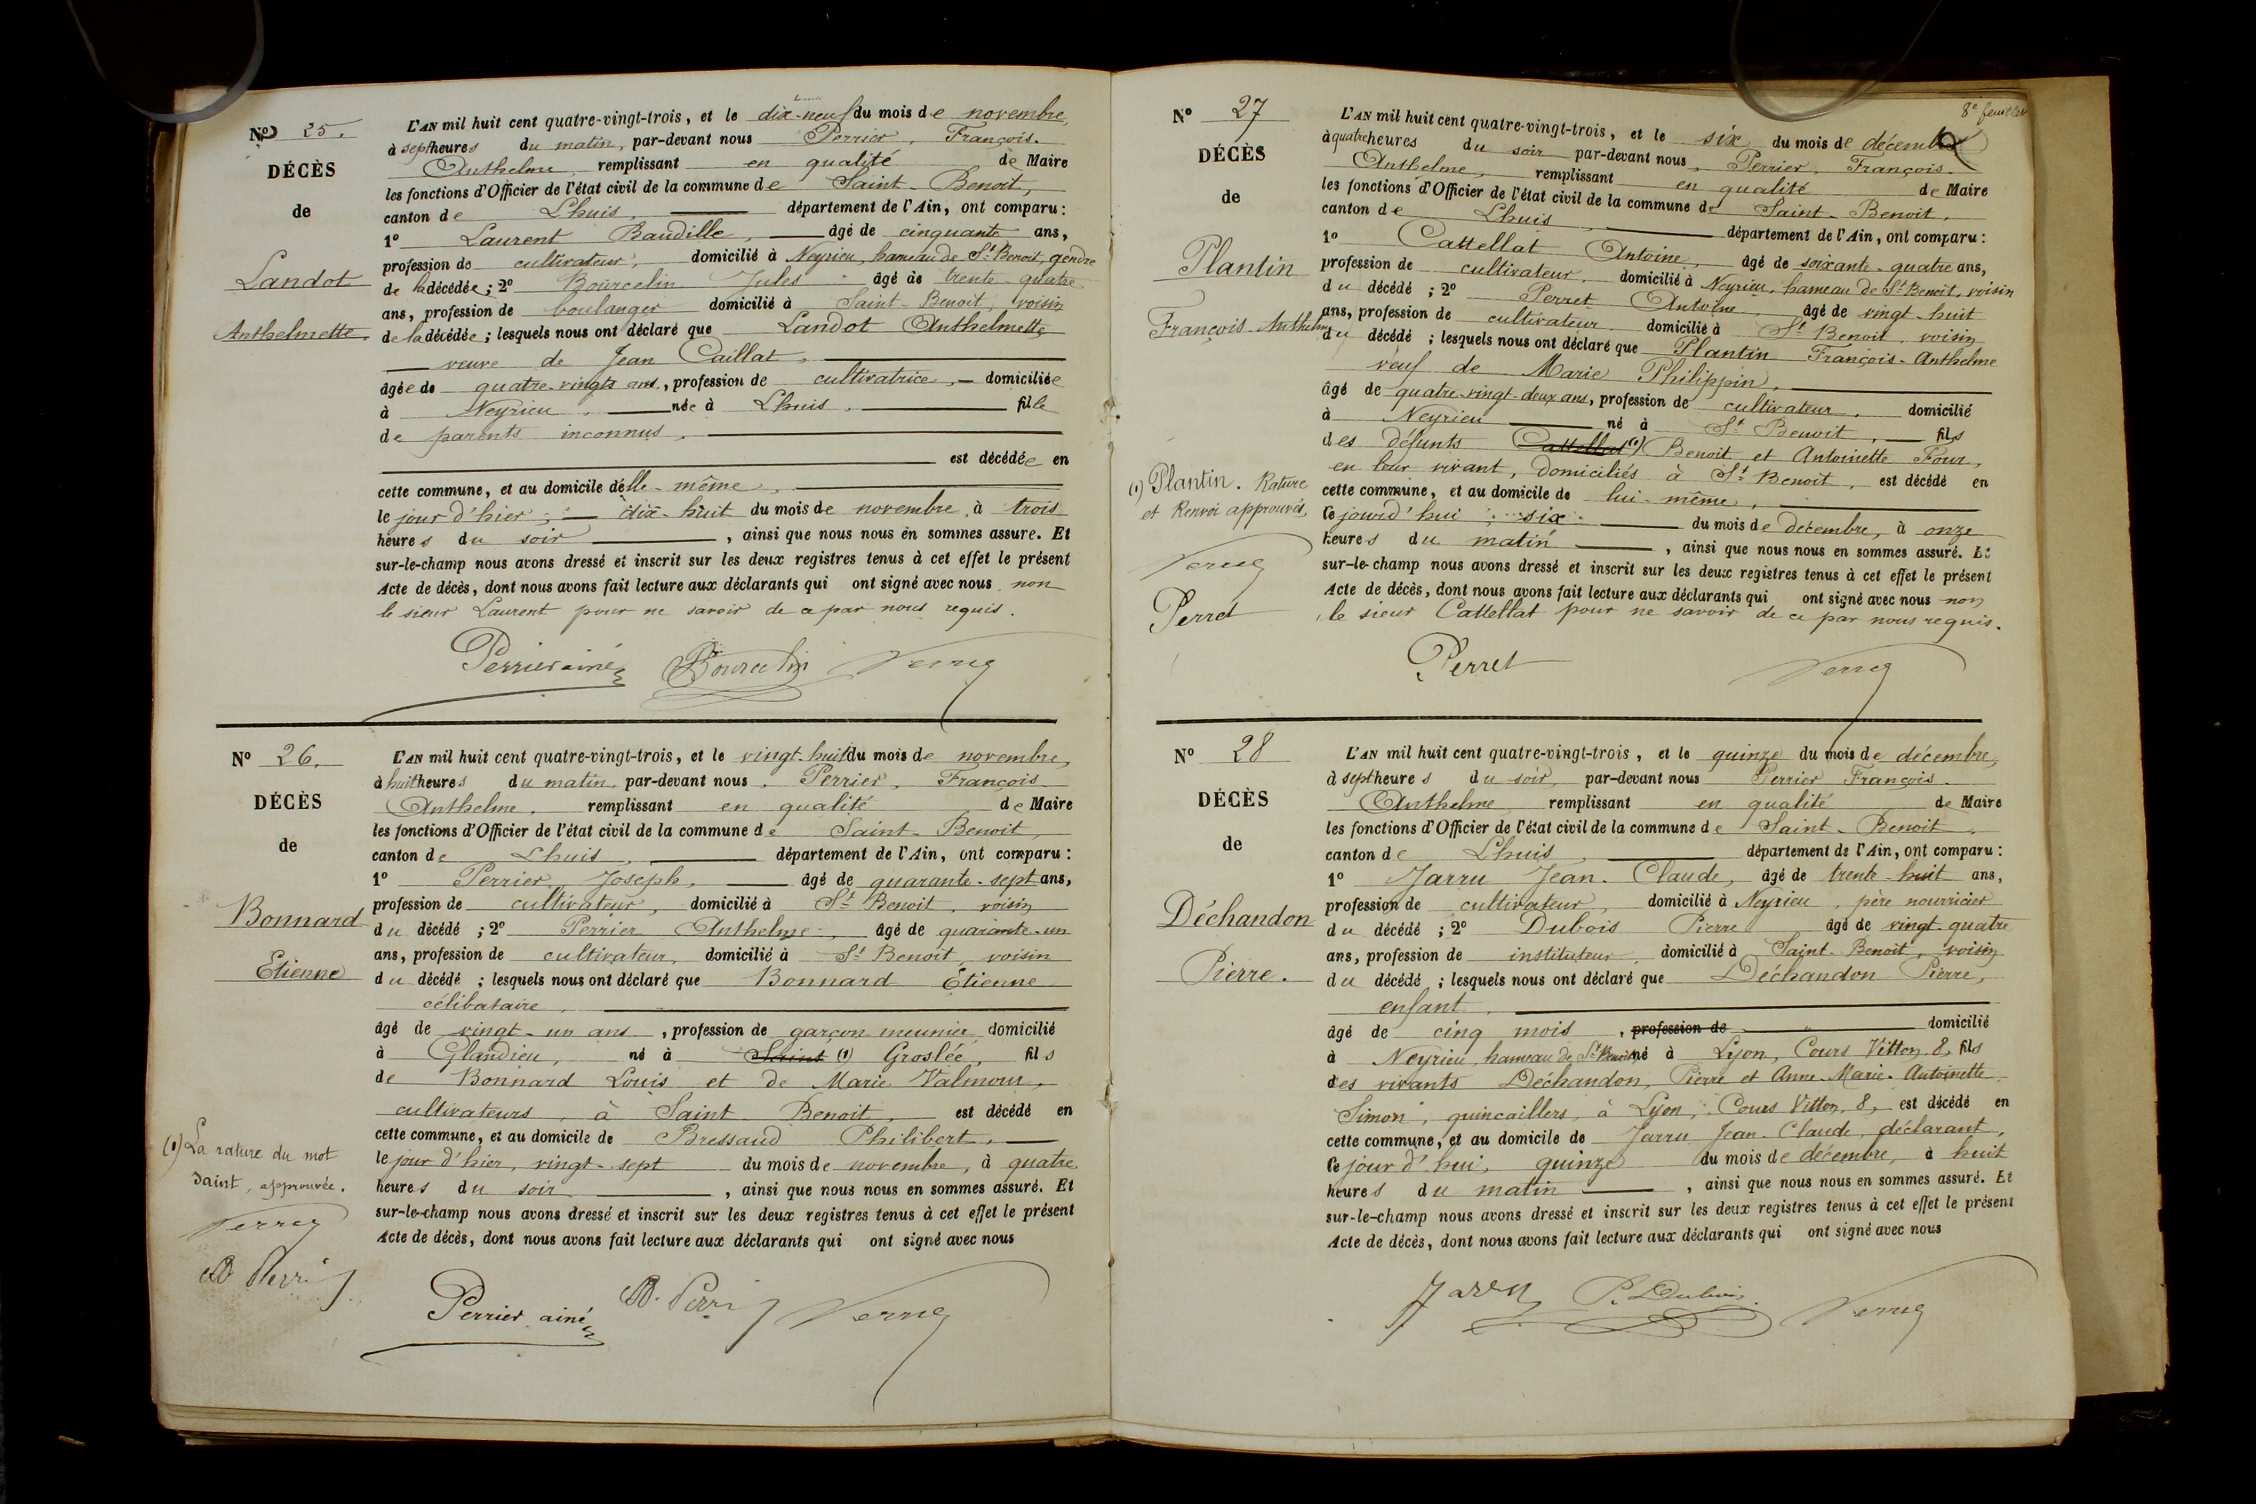 Nº 25.
DÉCÈS
de
Landot
Anthelmette.
L'AN mil huit cent quatre-vingt-trois, et le dix-neuf du mois de novembre,
à sept heures du matin, par-devant nous Perrier, François.
Anthelme, remplissant en qualité de Maire
les fonctions d'Officier de l'état civil de la commune de Saint-Benoit,
canton de Lhuis, département de l'Ain, ont comparu :
1º Laurent Baudille, âgé de cinquante ans,
profession de cultivateur, domicilié à Neyrieu, hameau de St Benoit, gendre
de la décédée ; 2º Bourcelin Jules âgé de trente-quatre
ans, profession de boulanger domicilié à Saint-Benoit, voisin
de la décédée ; lesquels nous ont déclaré que Landot Anthelmette
veuve de Jean Caillat,
âgée de quatre-vingts ans, profession de cultivatrice, domiciliée
à Neyrieu, née à Lhuis, fille
de parents inconnus,
est décédée en
cette commune, et au domicile d'elle-même,
le jour d'hier, dix-huit du mois de novembre, à trois
heures du soir, ainsi que nous nous en sommes assuré. Et
sur-le-champ nous avons dressé et inscrit sur les deux registres tenus à cet effet le présent
Acte de décès, dont nous avons fait lecture aux déclarants qui ont signé avec nous non
le sieur Laurent pour ne savoir de ce par nous requis.
Perrier ainé Bourcelin
Nº 26.
DÉCÈS
de
Bonnard
Etienne
(1) La rature du mot
Saint, approuvée.
L'AN mil huit cent quatre-vingt-trois, et le vingt-huit du mois de novembre,
à huit heures du matin, par-devant nous, Perrier, François
Anthelme, remplissant en qualité de Maire
les fonctions d'Officier de l'état civil de la commune de Saint-Benoit,
canton de Lhuis, département de l'Ain, ont comparu :
1º Perrier Joseph, âgé de quarante-sept ans,
profession de cultivateur, domicilié à St Benoit, voisin
du décédé ; 2º Perrier Anthelme, âgé de quarante-un
ans, profession de cultivateur, domicilié à St Benoit, voisin
du décédé ; lesquels nous ont déclaré que Bonnard Étienne
célibataire,
âgé de vingt-un ans, profession de garçon meunier domicilié
à Glandieu, né à Saint (1) Groslée, fils
de Bonnard Louis et de Marie Valmour,
cultivateurs, à Saint Benoit, est décédé en
cette commune, et au domicile de Bressaud Philibert,
le jour d'hier, vingt-sept du mois de novembre, à quatre
heures du soir, ainsi que nous nous en sommes assuré. Et
sur-le-champ nous avons dressé et inscrit sur les deux registres tenus à cet effet le présent
Acte de décès, dont nous avons fait lecture aux déclarants qui ont signé avec nous
Perrier ainé
8e feuillet
Nº 27
DÉCÈS
de
Plantin
François-Anthelme
(1) Plantin. Rature
et Renvoi approuvés,
Perret
L'AN mil huit cent quatre-vingt-trois, et le six du mois de décembre
à quatre heures du soir par-devant nous, Perrier, François.
Anthelme, remplissant en qualité de Maire
les fonctions d'Officier de l'état civil de la commune de Saint-Benoit,
canton de Lhuis, département de l'Ain, ont comparu :
1º Cattellat Antoine, âgé de soixante-quatre ans,
profession de cultivateur, domicilié à Neyrieu, hameau de St Benoit, voisin
du décédé ; 2º Perret Antoine, âgé de vingt-huit
ans, profession de cultivateur domicilié à St Benoit, voisin
du décédé ; lesquels nous ont déclaré que Plantin François-Anthelme
veuf de Marie Philippin,
âgé de quatre-vingt-deux ans, profession de cultivateur, domicilié
à Neyrieu né à St Benoit, fils
des défunts Cattellat (1) Benoit et Antoinette Four,
en leur vivant, domiciliés à St Benoit, est décédé en
cette commune, et au domicile de lui-même,
ce jourd'hui, six du mois de décembre, à onze
heures du matin, ainsi que nous nous en sommes assuré. Et
sur-le-champ nous avons dressé et inscrit sur les deux registres tenus à cet effet le présent
Acte de décès, dont nous avons fait lecture aux déclarants qui ont signé avec nous non
le sieur Cattellat pour ne savoir de ce par nous requis.
Perret
Nº 28
DÉCÈS
de
Déchandon
Pierre.
L'AN mil huit cent quatre-vingt-trois, et le quinze du mois de décembre,
à sept heures du soir, par-devant nous Perrier François.
Anthelme remplissant en qualité de Maire
les fonctions d'Officier de l'état civil de la commune de Saint-Benoit,
canton de Lhuis, département de l'Ain, ont comparu :
1º Jarru Jean-Claude, âgé de trente-huit ans,
profession de cultivateur, domicilié à Neyrieu, père nourricier
du décédé ; 2º Dubois Pierre âgé de vingt-quatre
ans, profession de instituteur domicilié à Saint-Benoit, voisin
du décédé ; lesquels nous ont déclaré que Déchandon Pierre,
enfant,
âgé de cinq mois, profession de domicilié
à Neyrieu, hameau de St Benoit né à Lyon, Cours Vitton, 8, fils
des vivants Déchandon, Pierre et Anne-Marie-Antoinette
Simon, quincaillers à Lyon, Cours Vitton, 8, est décédé en
cette commune, et au domicile de Jarru Jean-Claude, déclarant,
ce jour d'hui, quinze du mois de décembre, à huit
heures du matin, ainsi que nous nous en sommes assuré. Et
sur-le-champ nous avons dressé et inscrit sur les deux registres tenus à cet effet le présent
Acte de décès, dont nous avons fait lecture aux déclarants qui ont signé avec nous
Jarru P. Dubois